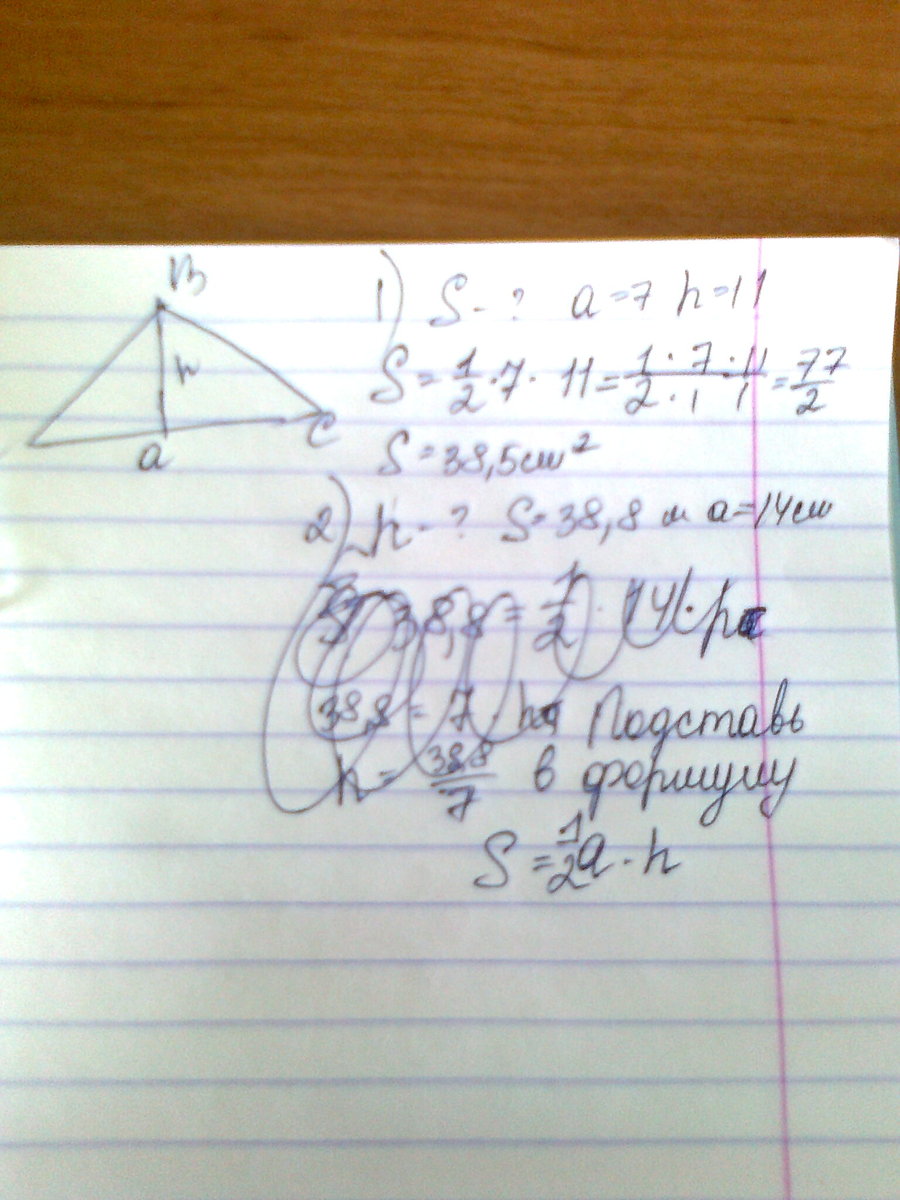 B
h
a
C
1) S - ? a = 7 h = 11
S = 1/2 · 7 · 11 = 1 · 7 · 11 / 2 · 1 1 = 77/2
S = 38,5 см²
2) h - ? S = 38,8 м a = 14 см
38,8 = 1/2 · 14 · h
38,8 = 7 · h Подставь
h = 38,8/7 в формулу
S = 1/2 a · h